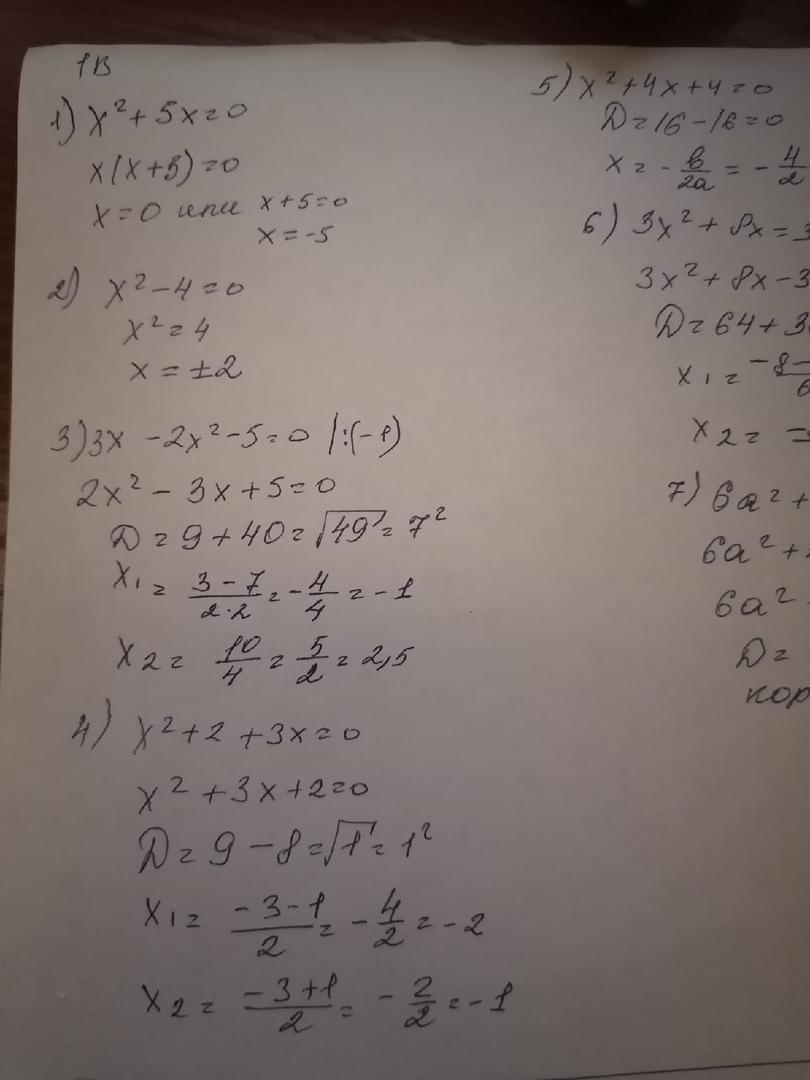 1В
1) x² + 5x = 0
x(x+5) = 0
x = 0 или x + 5 = 0
x = -5
2) x² - 4 = 0
x² = 4
x = ±2
3) 3x - 2x² - 5 = 0 |:(-1)
2x² - 3x + 5 = 0
D = 9 + 40 = √49 = 7²
x₁ = (3 - 7)/(2·2) = -4/4 = -1
x₂ = 10/4 = 5/2 = 2,5
4) x² + 2 + 3x = 0
x² + 3x + 2 = 0
D = 9 - 8 = √1 = 1²
x₁ = (-3 - 1)/2 = -4/2 = -2
x₂ = (-3 + 1)/2 = -2/2 = -1
5) x² + 4x + 4 = 0
D = 16 - 16 = 0
x = -b/2a = -4/2
6) 3x² + 8x = 3
3x² + 8x - 3
D = 64 + 3
x₁ = -8 -/6
x₂ =
7) 6a² +
6a² +
6a²
D =
кор